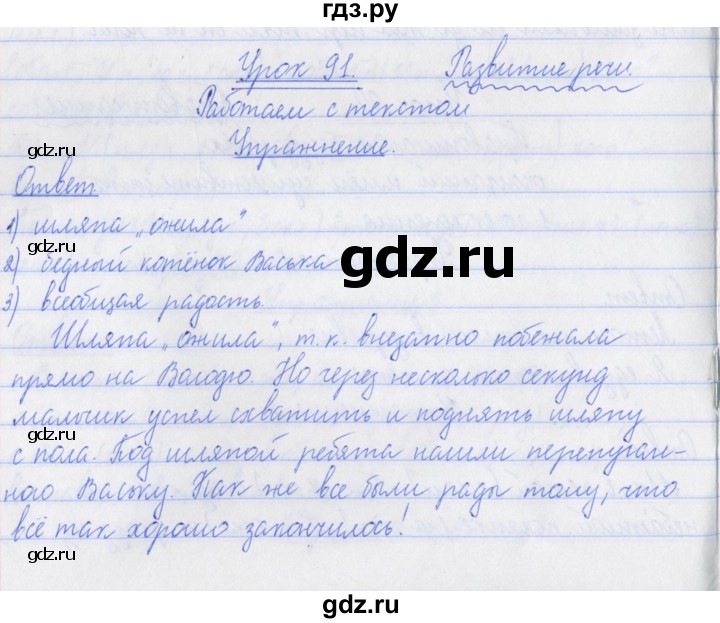 гдз.ру
Урок 91. Развитие речи.
Работаем с текстом
Упражнение.
gdz.ru gdz.ru
Ответ
1) шляпа „ожила"
2) бедный котёнок Васька
gdz.ru
3) всеобщая радость.
gdz.ru gdz.ru
Шляпа „ожила", т.к. внезапно побежала
прямо на Володю. Но через несколько секунд
мальчик успел схватить и поднять шляпу
gdz.ru gdz.ru
с пола. Под шляпой ребята нашли перепуган-
ного Ваську. Как же все были рады тому, что
всё так хорошо закончилось!
gdz.ru gdz.ru
gdz.ru